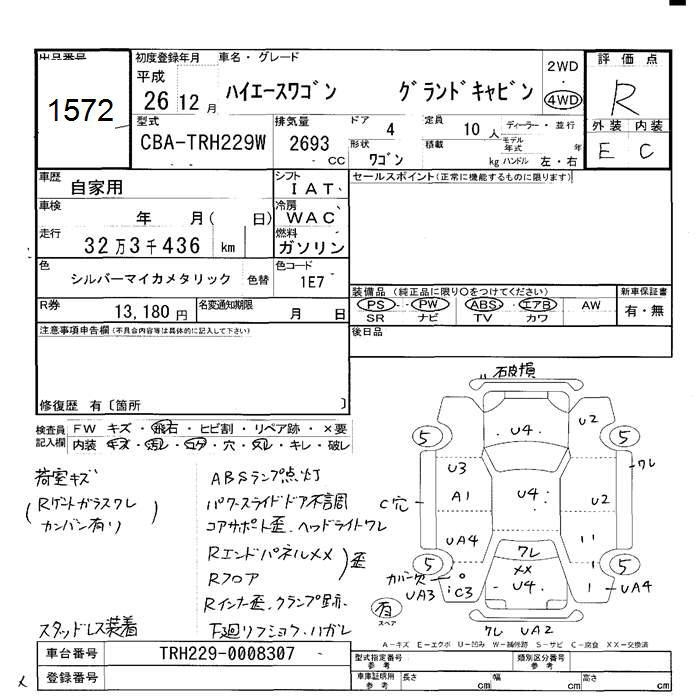 出品番号
1572
初度登録年月
平成
26 12 月
車名・グレード
ハイエースワゴン グランドキャビン
2WD
・
4WD
評価点
R
外装 内装
E C
型式
CBA-TRH229W
排気量
2693
CC
ドア
4
形状
ワゴン
定員
10 人
積載
kg
ディーラー・並行
モデル年式
年
ハンドル 左・右
車歴
自家用
シフト
I A T
車検
年 月( 日)
冷房
W A C
走行
32 万 3 千 436 km
燃料
ガソリン
色
シルバーマイカメタリック
色替
色コード
1E7
R券
13,180 円
名変通知期限
月 日
セールスポイント(正常に機能するものに限ります)
装備品(純正品に限り○をつけてください)
PS・PW・ABS・エアB・AW
SR ナビ TV カワ
新車保証書
有・無
注意事項申告欄(不具合内容等は具体的に記入して下さい)
後日品
修復歴 有〔箇所 〕
検査員記入欄
FW キズ・飛石・ヒビ割・リペア跡・×要
内装 キズ・汚レ・コゲ・穴・スレ・キレ・破レ
荷室キズ
(Rゲートガラスワレ
カンバン有り)
スタッドレス装着
ABSランプ点灯
パワースライドドア不調
コアサポート歪、ヘッドライトワレ
RエンドパネルXX
Rフロア
歪
Rインナー歪、クランプ跡
下廻リフショク、ハガレ
破損
U4
U2
5
5
ワレ
U3
A1
C穴
U4
U2
UA4
ワレ
XX
U4
カバー欠
UA3
iC3
5
5
UA4
有
スペア
ワレ UA2
A-キズ E-エクボ U-凹み W-補修跡 S-サビ C-腐食 XX-交換済
車台番号
TRH229-0008307
登録番号
型式指定番号
参考
類別区分番号
参考
車庫証明用
参考
長さ cm
幅 cm
高さ cm